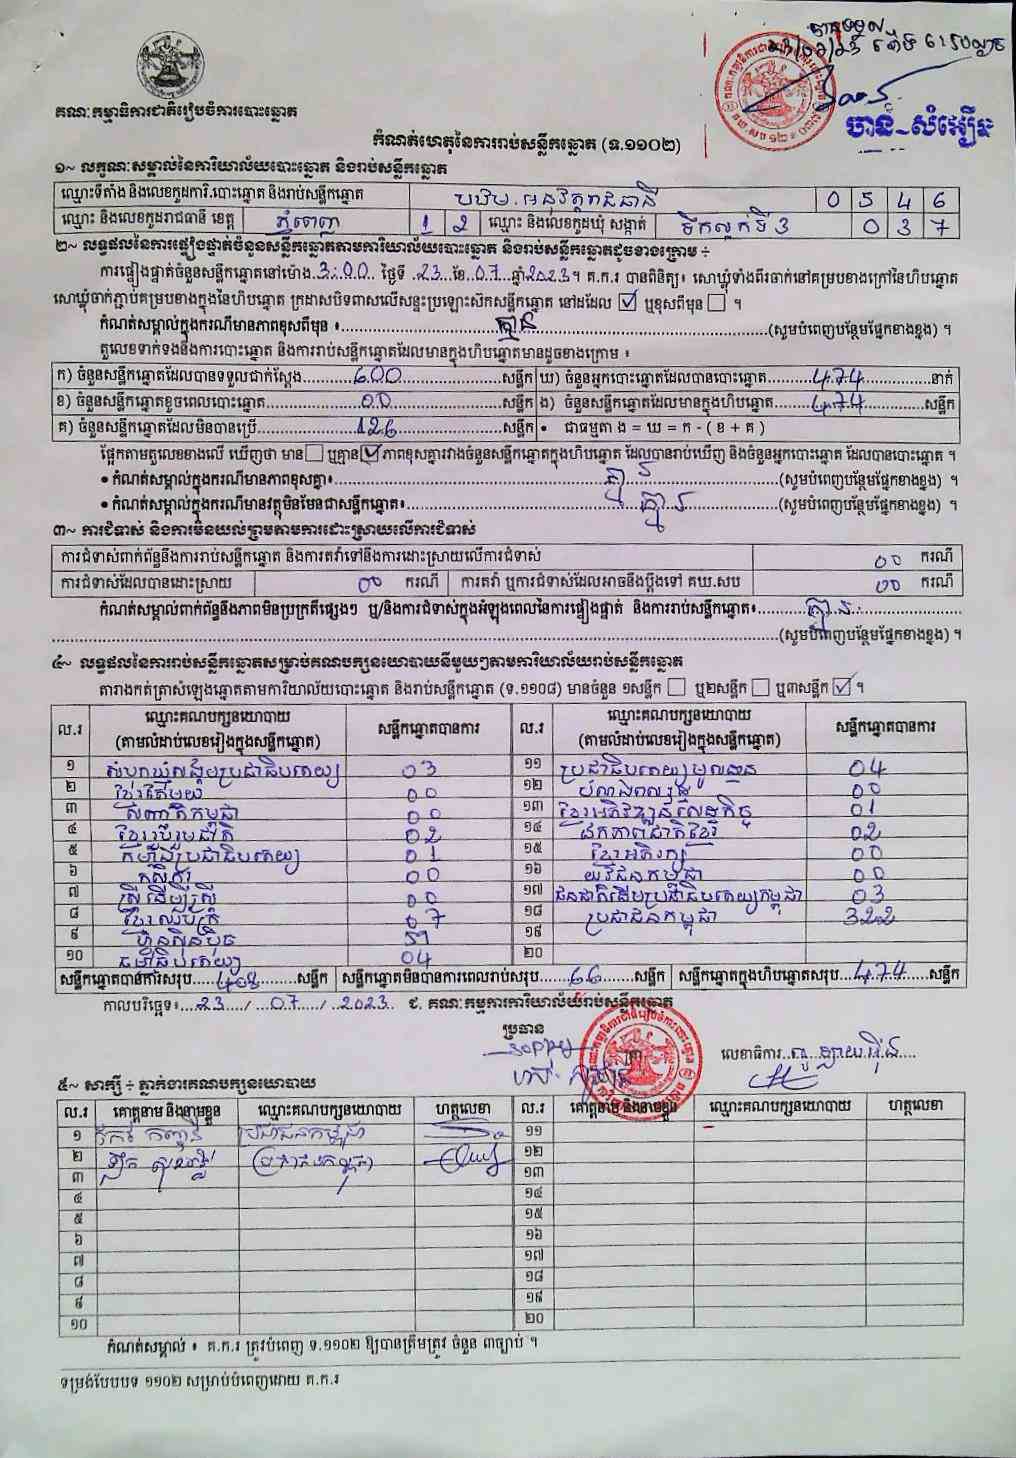 គណៈកម្មាធិការជាតិរៀបចំការបោះឆ្នោត
កំណត់ហេតុនៃការរាប់សន្លឹកឆ្នោត (ទ.១១០២)
ចាន់ សំអឿន
១~ លក្ខណៈសម្គាល់នៃការិយាល័យបោះឆ្នោត និងរាប់សន្លឹកឆ្នោត
ឈ្មោះទីតាំង និងលេខកូដការិ.បោះឆ្នោត និងរាប់សន្លឹកឆ្នោត 0 5 4 6
ឈ្មោះ និងលេខកូដរាជធានី ខេត្ត ភ្នំពេញ 1 2 ឈ្មោះ និងលេខកូដឃុំ សង្កាត់ ទឹកល្អក់ទី 3 0 3 7
២~ លទ្ធផលនៃការផ្ទៀងផ្ទាត់ចំនួនសន្លឹកឆ្នោតតាមការិយាល័យបោះឆ្នោត និងរាប់សន្លឹកឆ្នោតដូចខាងក្រោម ÷
ការផ្ទៀងផ្ទាត់ចំនួនសន្លឹកឆ្នោតនៅម៉ោង 3:00 ថ្ងៃទី 23 ខែ 07 ឆ្នាំ 2023។ គ.ក.រ បានពិនិត្យ៖ សោឃ្លុំទាំងពីរចាក់នៅគម្របខាងក្រៅនៃហិបឆ្នោត
សោឃ្លុំចាក់ភ្ជាប់គម្របខាងក្នុងនៃហិបឆ្នោត ក្រដាសបិទពាសលើសន្ទះប្រឡោះសិកសន្លឹកឆ្នោត នៅដដែល ☑ ឬខុសពីមុន ☐ ។
កំណត់សម្គាល់ក្នុងករណីមានភាពខុសពីមុន ៖ គ្មាន (សូមបំពេញបន្ថែមផ្នែកខាងខ្នង) ។
តួលេខទាក់ទងនឹងការបោះឆ្នោត និងការរាប់សន្លឹកឆ្នោតដែលមានក្នុងហិបឆ្នោតមានដូចខាងក្រោម ៖
ក) ចំនួនសន្លឹកឆ្នោតដែលបានទទួលជាក់ស្តែង 600 សន្លឹក ឃ) ចំនួនអ្នកបោះឆ្នោតដែលបានបោះឆ្នោត 474 នាក់
ខ) ចំនួនសន្លឹកឆ្នោតខូចពេលបោះឆ្នោត 00 សន្លឹក ង) ចំនួនសន្លឹកឆ្នោតដែលមានក្នុងហិបឆ្នោត 474 សន្លឹក
គ) ចំនួនសន្លឹកឆ្នោតដែលមិនបានប្រើ 126 សន្លឹក • ជាធម្មតា ង = ឃ = ក - ( ខ + គ )
ផ្អែកតាមតួលេខខាងលើ ឃើញថា មាន ☐ ឬគ្មាន ☑ ភាពខុសគ្នារវាងចំនួនសន្លឹកឆ្នោតក្នុងហិបឆ្នោត ដែលបានរាប់ឃើញ និងចំនួនអ្នកបោះឆ្នោត ដែលបានបោះឆ្នោត ។
• កំណត់សម្គាល់ក្នុងករណីមានភាពខុសគ្នា៖ គ្មាន (សូមបំពេញបន្ថែមផ្នែកខាងខ្នង) ។
• កំណត់សម្គាល់ក្នុងករណីមានវត្ថុមិនមែនជាសន្លឹកឆ្នោត៖ គ្មាន (សូមបំពេញបន្ថែមផ្នែកខាងខ្នង) ។
៣~ ការជំទាស់ និងការមិនយល់ព្រមតាមការដោះស្រាយលើការជំទាស់
ការជំទាស់ពាក់ព័ន្ធនឹងការរាប់សន្លឹកឆ្នោត និងការតវ៉ាទៅនឹងការដោះស្រាយលើការជំទាស់ 00 ករណី
ការជំទាស់ដែលបានដោះស្រាយ 00 ករណី ការតវ៉ា ឬការជំទាស់ដែលអាចនឹងប្តឹងទៅ គឃ.សប 00 ករណី
កំណត់សម្គាល់ពាក់ព័ន្ធនឹងភាពមិនប្រក្រតីផ្សេងៗ ឬ/និងការជំទាស់ក្នុងអំឡុងពេលនៃការផ្ទៀងផ្ទាត់ និងការរាប់សន្លឹកឆ្នោត៖ គ្មាន
(សូមបំពេញបន្ថែមផ្នែកខាងខ្នង) ។
៤~ លទ្ធផលនៃការរាប់សន្លឹកឆ្នោតសម្រាប់គណបក្សនយោបាយនីមួយៗតាមការិយាល័យរាប់សន្លឹកឆ្នោត
តារាងកត់ត្រាសំឡេងឆ្នោតតាមការិយាល័យបោះឆ្នោត និងរាប់សន្លឹកឆ្នោត (ទ.១១០៨) មានចំនួន ១សន្លឹក ☐ ឬ២សន្លឹក ☐ ឬ៣សន្លឹក ☑ ។
ល.រ ឈ្មោះគណបក្សនយោបាយ (តាមលំដាប់លេខរៀងក្នុងសន្លឹកឆ្នោត) សន្លឹកឆ្នោតបានការ ល.រ ឈ្មោះគណបក្សនយោបាយ (តាមលំដាប់លេខរៀងក្នុងសន្លឹកឆ្នោត) សន្លឹកឆ្នោតបានការ
១ សំបុកឃ្មុំសង្គមប្រជាធិបតេយ្យ 03 ១១ ប្រជាធិបតេយ្យមូលដ្ឋាន 04
២ ខ្មែរតែមួយ 00 ១២ 00
៣ សញ្ជាតិកម្ពុជា 00 ១៣ ខ្មែរអភិវឌ្ឍន៍សេដ្ឋកិច្ច 01
៤ ខ្មែររួបរួមជាតិ 02 ១៤ ឯកភាពជាតិខ្មែរ 02
៥ កម្លាំងប្រជាធិបតេយ្យ 01 ១៥ ខ្មែរអភិរក្ស 00
៦ កសិករ 00 ១៦ យុវជនកម្ពុជា 00
៧ ស្រ្តីដើម្បីស្រ្តី 00 ១៧ ជនជាតិដើមប្រជាធិបតេយ្យកម្ពុជា 03
៨ ខ្មែរឈប់ក្រ 07 ១៨ ប្រជាជនកម្ពុជា 322
៩ ហ៊្វុនស៊ិនប៉ិច ១៩
១០ ធម្មាធិបតេយ្យ 04 ២០
សន្លឹកឆ្នោតបានការសរុប 408 សន្លឹក សន្លឹកឆ្នោតមិនបានការពេលរាប់សរុប 66 សន្លឹក សន្លឹកឆ្នោតក្នុងហិបឆ្នោតសរុប 474 សន្លឹក
កាលបរិច្ឆេទ៖ 23 / 07 / 2023 ជ. គណៈកម្មការការិយាល័យរាប់សន្លឹកឆ្នោត
ប្រធាន
លេខាធិការ
៥~ សាក្សី ÷ ភ្នាក់ងារគណបក្សនយោបាយ
ល.រ គោត្តនាម និងនាមខ្លួន ឈ្មោះគណបក្សនយោបាយ ហត្ថលេខា ល.រ គោត្តនាម និងនាមខ្លួន ឈ្មោះគណបក្សនយោបាយ ហត្ថលេខា
១ ប្រជាជនកម្ពុជា ១១
២ ប្រជាជនកម្ពុជា ១២
៣ ១៣
៤ ១៤
៥ ១៥
៦ ១៦
៧ ១៧
៨ ១៨
៩ ១៩
១០ ២០
កំណត់សម្គាល់ ៖ គ.ក.រ ត្រូវបំពេញ ទ.១១០២ ឱ្យបានត្រឹមត្រូវ ចំនួន ៣ច្បាប់ ។
ទម្រង់បែបបទ ១១០២ សម្រាប់បំពេញដោយ គ.ក.រ